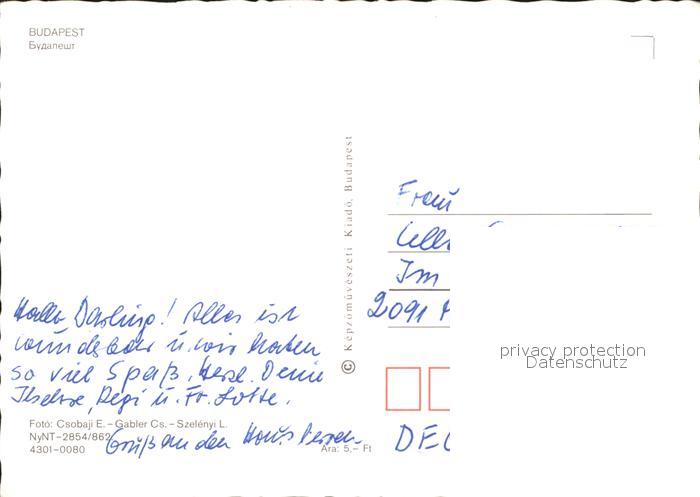 BUDAPEST
Будапешт
Hallo Darling! Alles ist
wunderbar u. wir haben
so viel Spaß, Herzl. Deine
Ilselore, Regi u. Fr. Lotte.
Fotó: Csobaji E. – Gabler Cs. – Szelényi L.
NyNT–2854/862
4301–0080
Gruß an den
Ára: 5,– Ft
© Képzőművészeti Kiadó, Budapest
Frau
Im
2091
privacy protection
Datenschutz